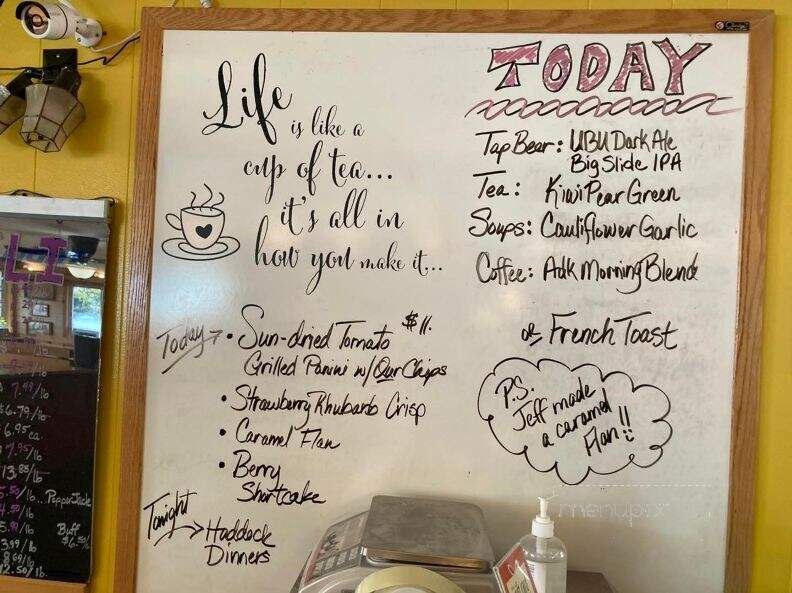 Life
is like a
cup of tea...
it's all in
how you make it...
TODAY
Tap Bear: UBU Dark Ale
Big Slide IPA
Tea: Kiwi Pear Green
Soups: Cauliflower Garlic
Coffee: Adk Morning Blend
or French Toast
P.S.
Jeff made
a caramel
Flan!!
Today → • Sun-dried Tomato $11.
Grilled Panini w/ Our Chips
• Strawberry Rhubarb Crisp
• Caramel Flan
• Berry
Shortcake
Tonight → Haddock
Dinners
LI
7.99/lb
6.79/lb
6.95 ea.
7.95/lb
13.85/lb
5.50/lb... Pepper Jack
4.50/lb
5.99/lb Buff
3.99/lb
8.69/lb
12.50/lb.
menupix